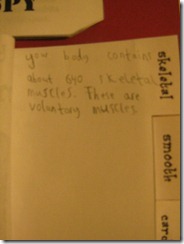 PY
your body contains
about 640 skeletal
muscles. These are
voluntary muscles.
skeletal
smooth
card